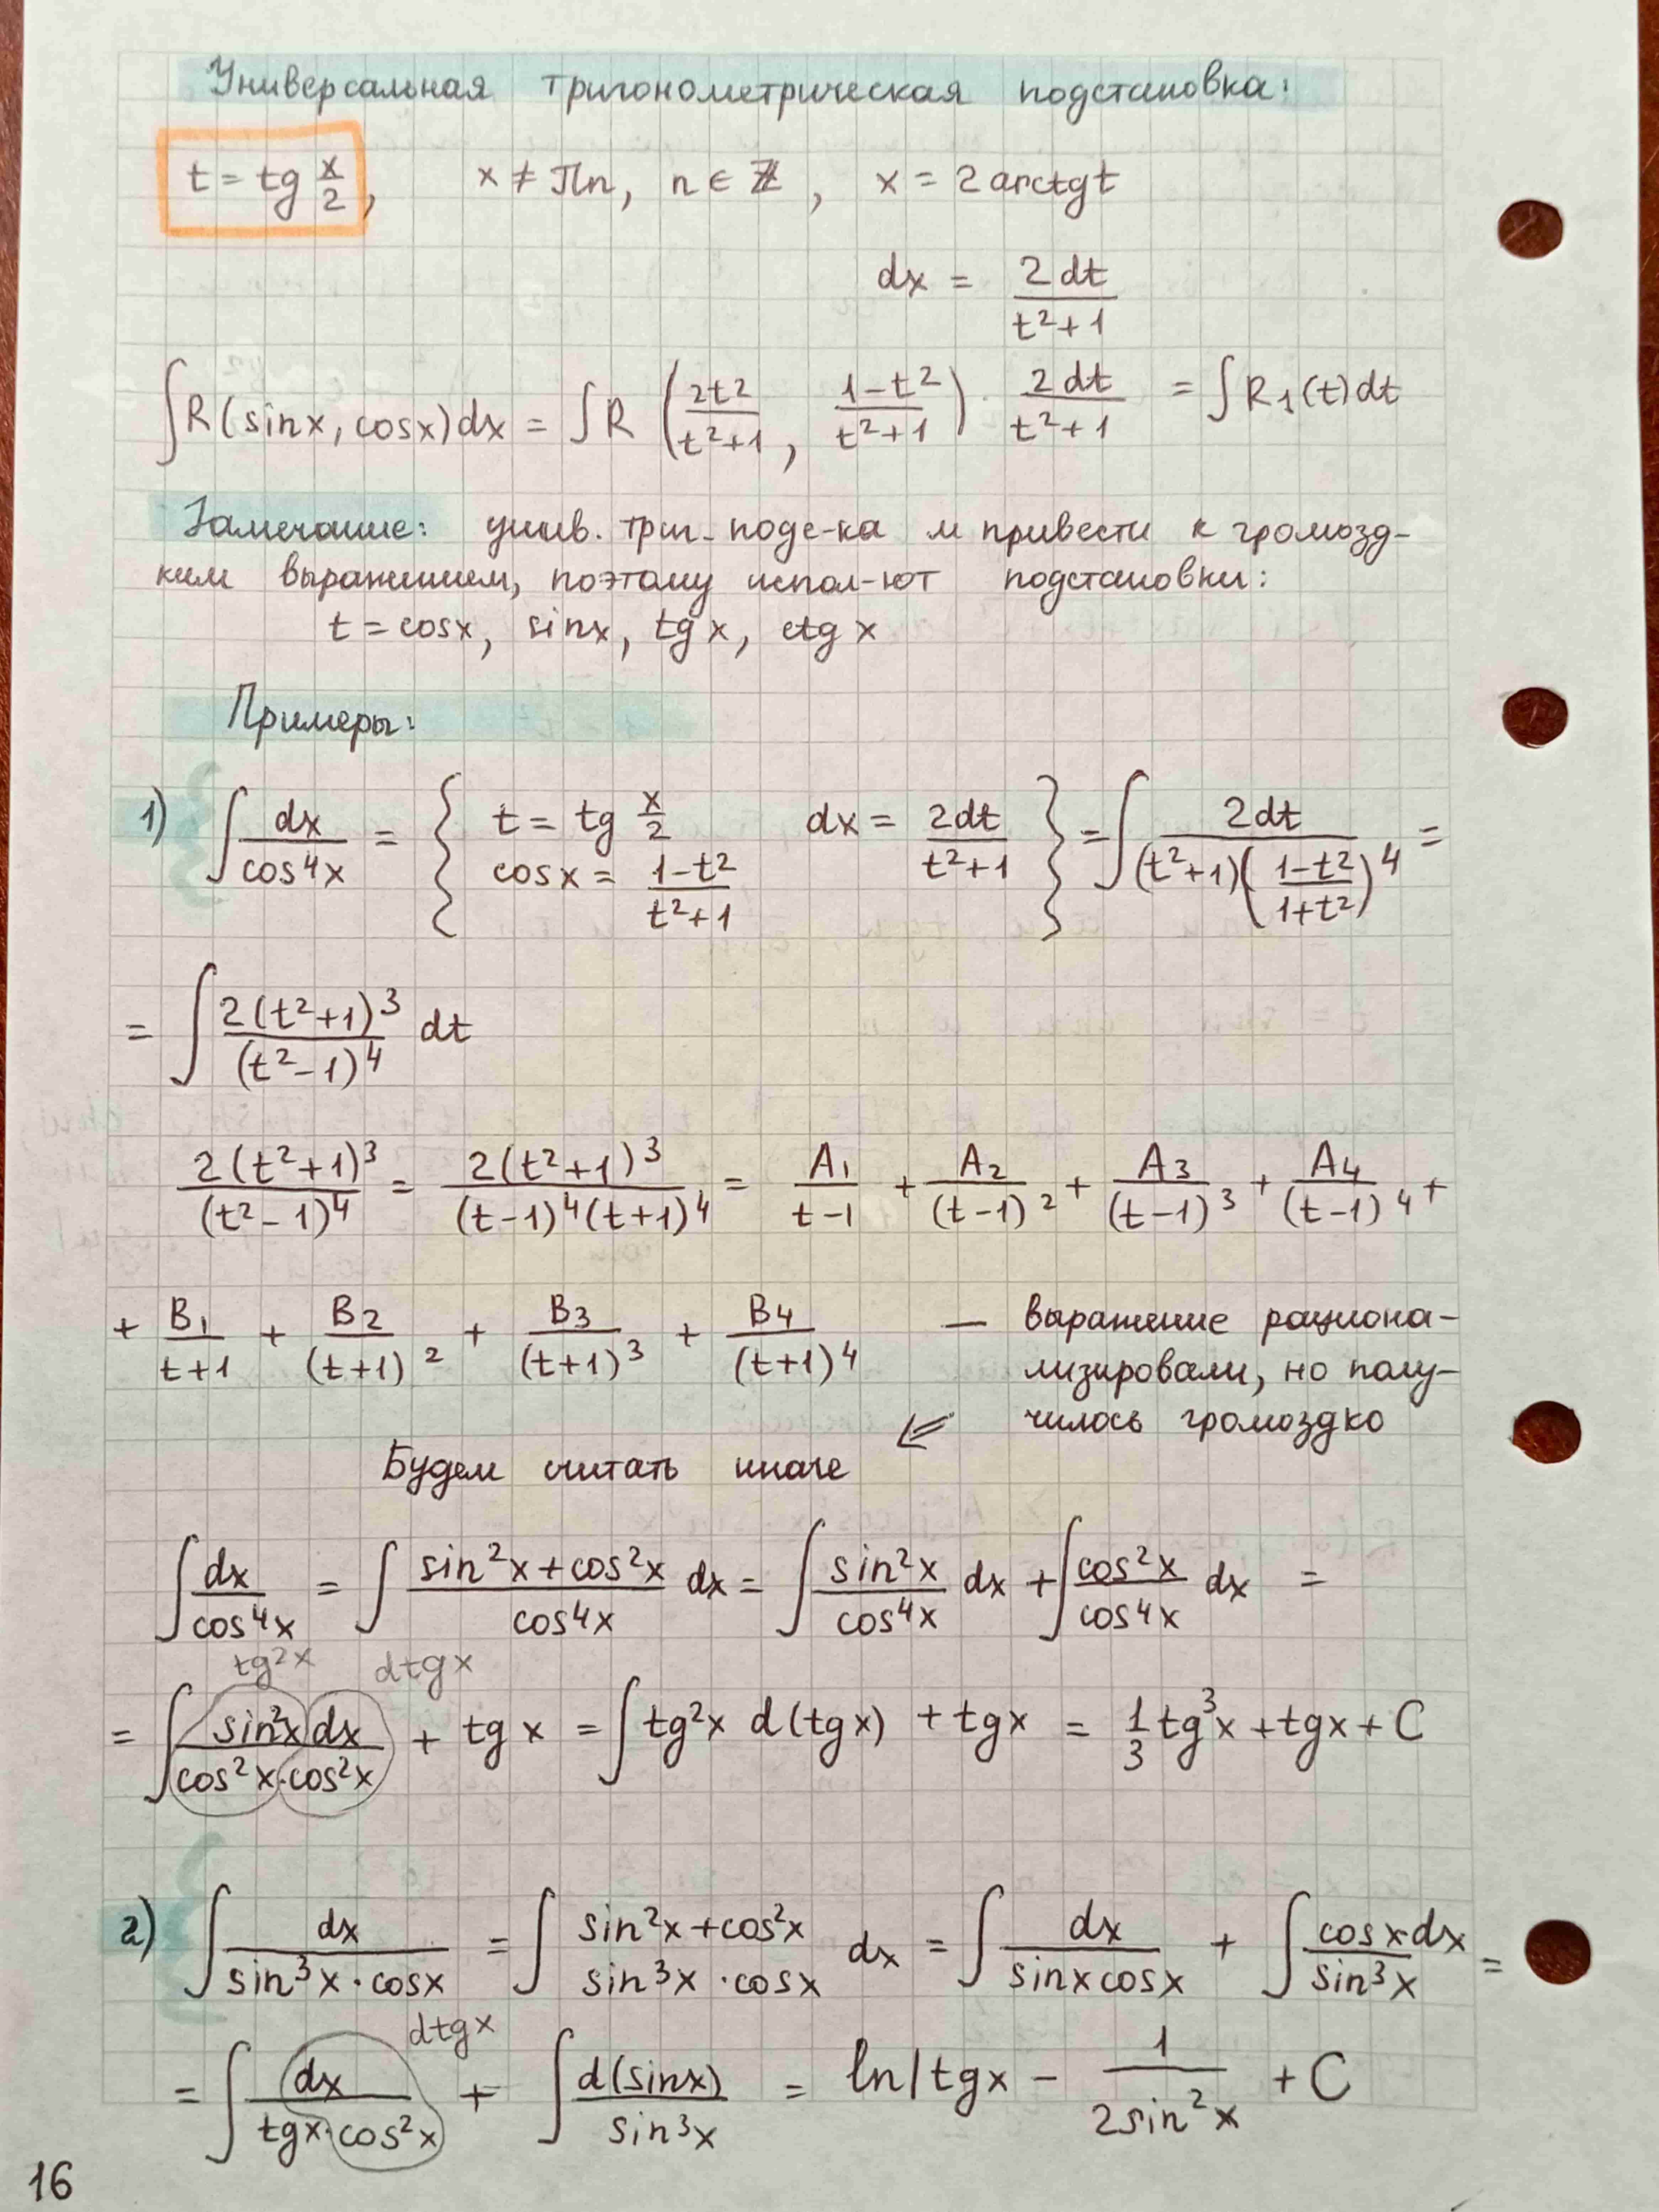 Универсальная тригонометрическая подстановка:
t = tg x/2, x ≠ πn, n ∈ ℤ, x = 2 arctg t
dx = 2dt/(t²+1)
∫R(sinx, cosx)dx = ∫R(2t²/(t²+1), (1-t²)/(t²+1)) · 2dt/(t²+1) = ∫R₁(t)dt
Замечание: унив. триг. подс-ка м привести к громозд-
ким выражениям, поэтому испол-ют подстановки:
t = cosx, sinx, tg x, ctg x
Примеры:
1) ∫dx/cos⁴x = { t = tg x/2 dx = 2dt/(t²+1) cosx = (1-t²)/(t²+1) } = ∫2dt/((t²+1)((1-t²)/(1+t²))⁴) =
= ∫2(t²+1)³/(t²-1)⁴ dt
2(t²+1)³/(t²-1)⁴ = 2(t²+1)³/((t-1)⁴(t+1)⁴) = A₁/(t-1) + A₂/(t-1)² + A₃/(t-1)³ + A₄/(t-1)⁴ +
+ B₁/(t+1) + B₂/(t+1)² + B₃/(t+1)³ + B₄/(t+1)⁴ — выражение рациона-
лизировали, но полу-
чилось громоздко
⇐
Будем считать иначе
∫dx/cos⁴x = ∫(sin²x+cos²x)/cos⁴x dx = ∫sin²x/cos⁴x dx + ∫cos²x/cos⁴x dx =
tg²x dtgx
= ∫sin²x dx/(cos²x·cos²x) + tg x = ∫tg²x d(tgx) + tgx = 1/3 tg³x + tgx + C
2) ∫dx/(sin³x·cosx) = ∫ sin²x+cos²x sin³x·cosx dx = ∫dx/(sinxcosx) + ∫cosxdx/sin³x =
dtgx
= ∫dx/(tgx·cos²x) + ∫d(sinx)/sin³x = ln|tgx - 1/(2sin²x) + C
16